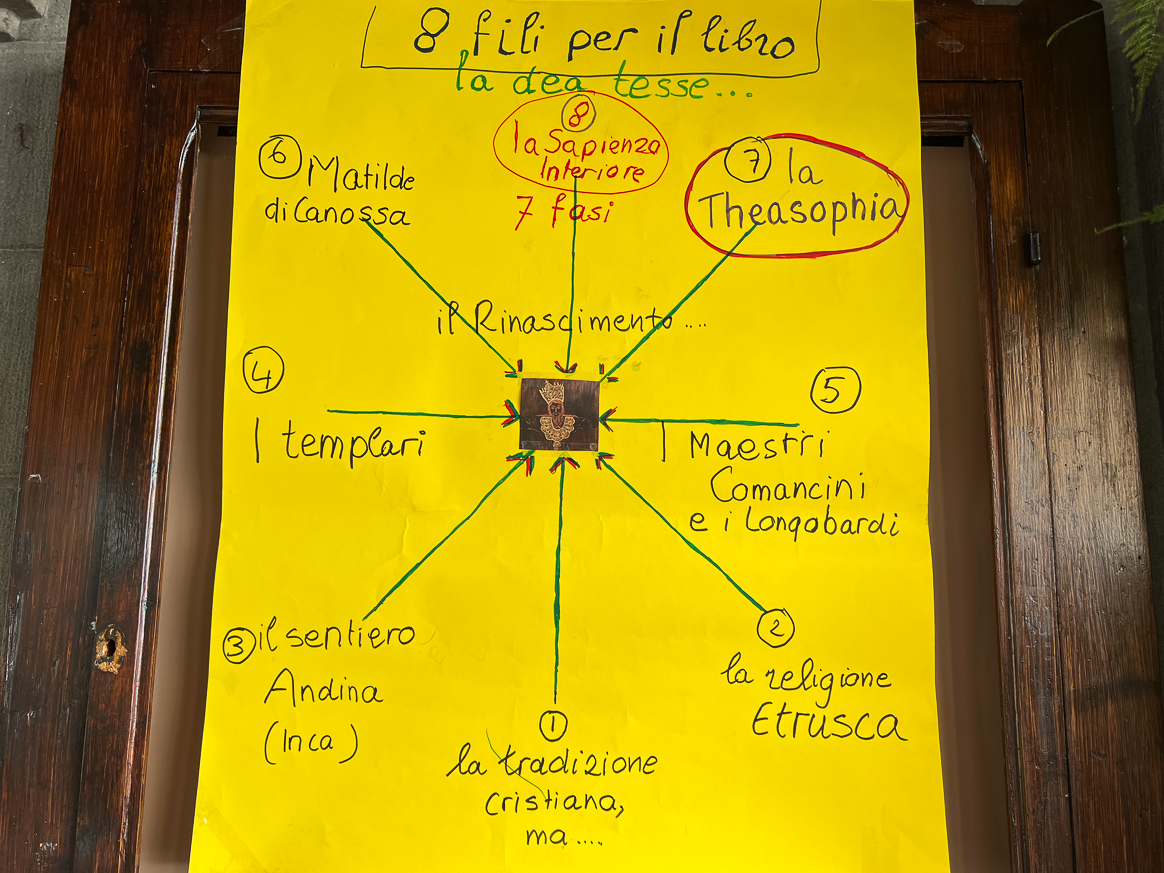 8 fili per il libro
la dea tesse...
8
la Sapienza
Interiore
7 fasi
6 Matilde
di Canossa
7 la
Theasophia
il Rinascimento....
4
I templari
5
I Maestri
Comancini
e i Longobardi
3 il sentiero
Andina
(Inca)
2
la religione
Etrusca
1
la tradizione
cristiana,
ma....